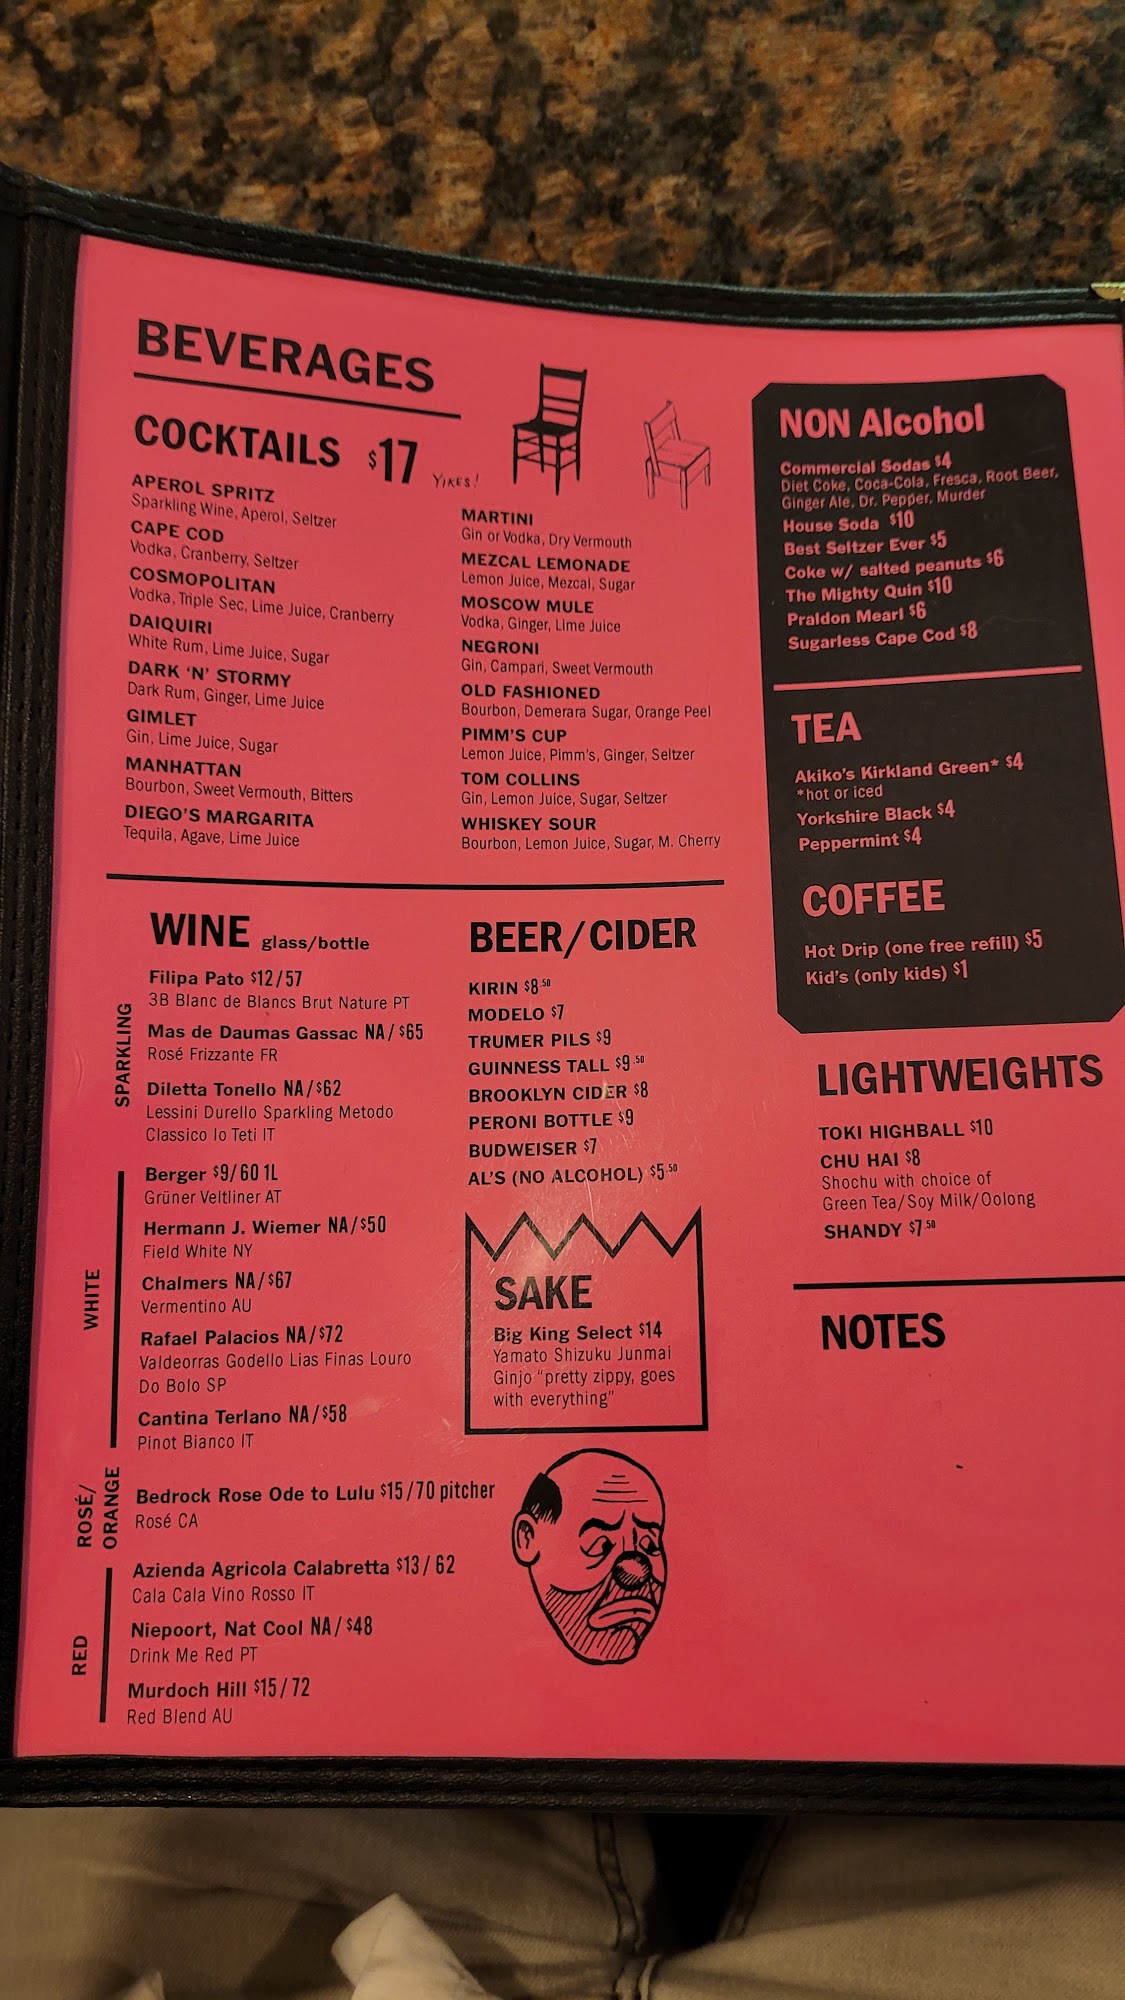 BEVERAGES
COCKTAILS $17 YIKES!
APEROL SPRITZ
Sparkling Wine, Aperol, Seltzer
CAPE COD
Vodka, Cranberry, Seltzer
COSMOPOLITAN
Vodka, Triple Sec, Lime Juice, Cranberry
DAIQUIRI
White Rum, Lime Juice, Sugar
DARK 'N' STORMY
Dark Rum, Ginger, Lime Juice
GIMLET
Gin, Lime Juice, Sugar
MANHATTAN
Bourbon, Sweet Vermouth, Bitters
DIEGO'S MARGARITA
Tequila, Agave, Lime Juice
MARTINI
Gin or Vodka, Dry Vermouth
MEZCAL LEMONADE
Lemon Juice, Mezcal, Sugar
MOSCOW MULE
Vodka, Ginger, Lime Juice
NEGRONI
Gin, Campari, Sweet Vermouth
OLD FASHIONED
Bourbon, Demerara Sugar, Orange Peel
PIMM'S CUP
Lemon Juice, Pimm's, Ginger, Seltzer
TOM COLLINS
Gin, Lemon Juice, Sugar, Seltzer
WHISKEY SOUR
Bourbon, Lemon Juice, Sugar, M. Cherry
WINE glass/bottle
SPARKLING
Filipa Pato $12/57
3B Blanc de Blancs Brut Nature PT
Mas de Daumas Gassac NA/$65
Rosé Frizzante FR
Diletta Tonello NA/$62
Lessini Durello Sparkling Metodo
Classico Io Teti IT
WHITE
Berger $9/60 1L
Grüner Veltliner AT
Hermann J. Wiemer NA/$50
Field White NY
Chalmers NA/$67
Vermentino AU
Rafael Palacios NA/$72
Valdeorras Godello Lias Finas Louro
Do Bolo SP
Cantina Terlano NA/$58
Pinot Bianco IT
ROSÉ/
ORANGE
Bedrock Rose Ode to Lulu $15/70 pitcher
Rosé CA
RED
Azienda Agricola Calabretta $13/62
Cala Cala Vino Rosso IT
Niepoort, Nat Cool NA/$48
Drink Me Red PT
Murdoch Hill $15/72
Red Blend AU
BEER/CIDER
KIRIN $8.50
MODELO $7
TRUMER PILS $9
GUINNESS TALL $9.50
BROOKLYN CIDER $8
PERONI BOTTLE $9
BUDWEISER $7
AL'S (NO ALCOHOL) $5.50
SAKE
Big King Select $14
Yamato Shizuku Junmai
Ginjo "pretty zippy, goes
with everything"
NON Alcohol
Commercial Sodas $4
Diet Coke, Coca-Cola, Fresca, Root Beer,
Ginger Ale, Dr. Pepper, Murder
House Soda $10
Best Seltzer Ever $5
Coke w/ salted peanuts $6
The Mighty Quin $10
Praldon Mearl $6
Sugarless Cape Cod $8
TEA
Akiko's Kirkland Green* $4
*hot or iced
Yorkshire Black $4
Peppermint $4
COFFEE
Hot Drip (one free refill) $5
Kid's (only kids) $1
LIGHTWEIGHTS
TOKI HIGHBALL $10
CHU HAI $8
Shochu with choice of
Green Tea/Soy Milk/Oolong
SHANDY $7.50
NOTES